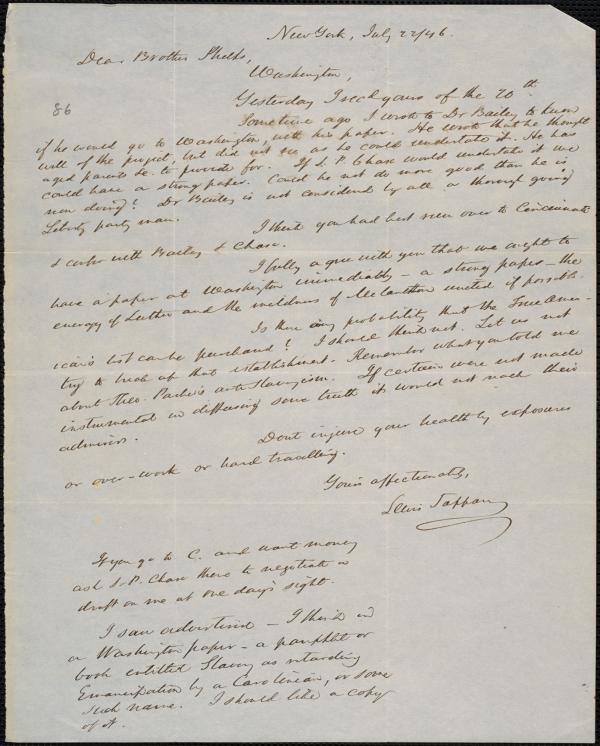 New York, July 22/46.
Dear Brother Phelps,
Washington,
86
Yesterday I recd yours of the 20th
Sometime ago I wrote to Dr Bailey to know
if he would go to Washington, with his paper. He wrote that he thought
well of the project, but did not see as he could undertake it. He has
aged parents &c. to provide for. If S. P. Chase would undertake it we
could have a strong paper. Could he not do more good than he is
now doing? Dr Bailey is not considered by all a thorough going
Liberty party man.
I think you had best run over to Cincinnati
& confer with Bailey & Chase.
I fully agree with you that we ought to
have a paper at Washington immediately - a strong paper - the
energy of Luther and the mildness of Melancthon united if possible.
Is there any probability that the True Amer-
ican's list can be purchased? I should think not. Let us not
try to break up that establishment. Remember what you told me
about Theo. Parker's anti Slaveryism. If certain were not made
instrumental in diffusing some truth it would not reach their
admirers.
Dont injure your health by exposures
or over-work or hard travelling.
Yours affectionately,
Lewis Tappan
If you go to C. and want money
ask S. P. Chase there to negotiate a
draft on me at one day's sight.
I saw advertised - I think in
a Washington paper - a pamphlet or
book entitled Slavery as retarding
Emancipation by a Carolinian, or some
such name. I should like a copy
of it.